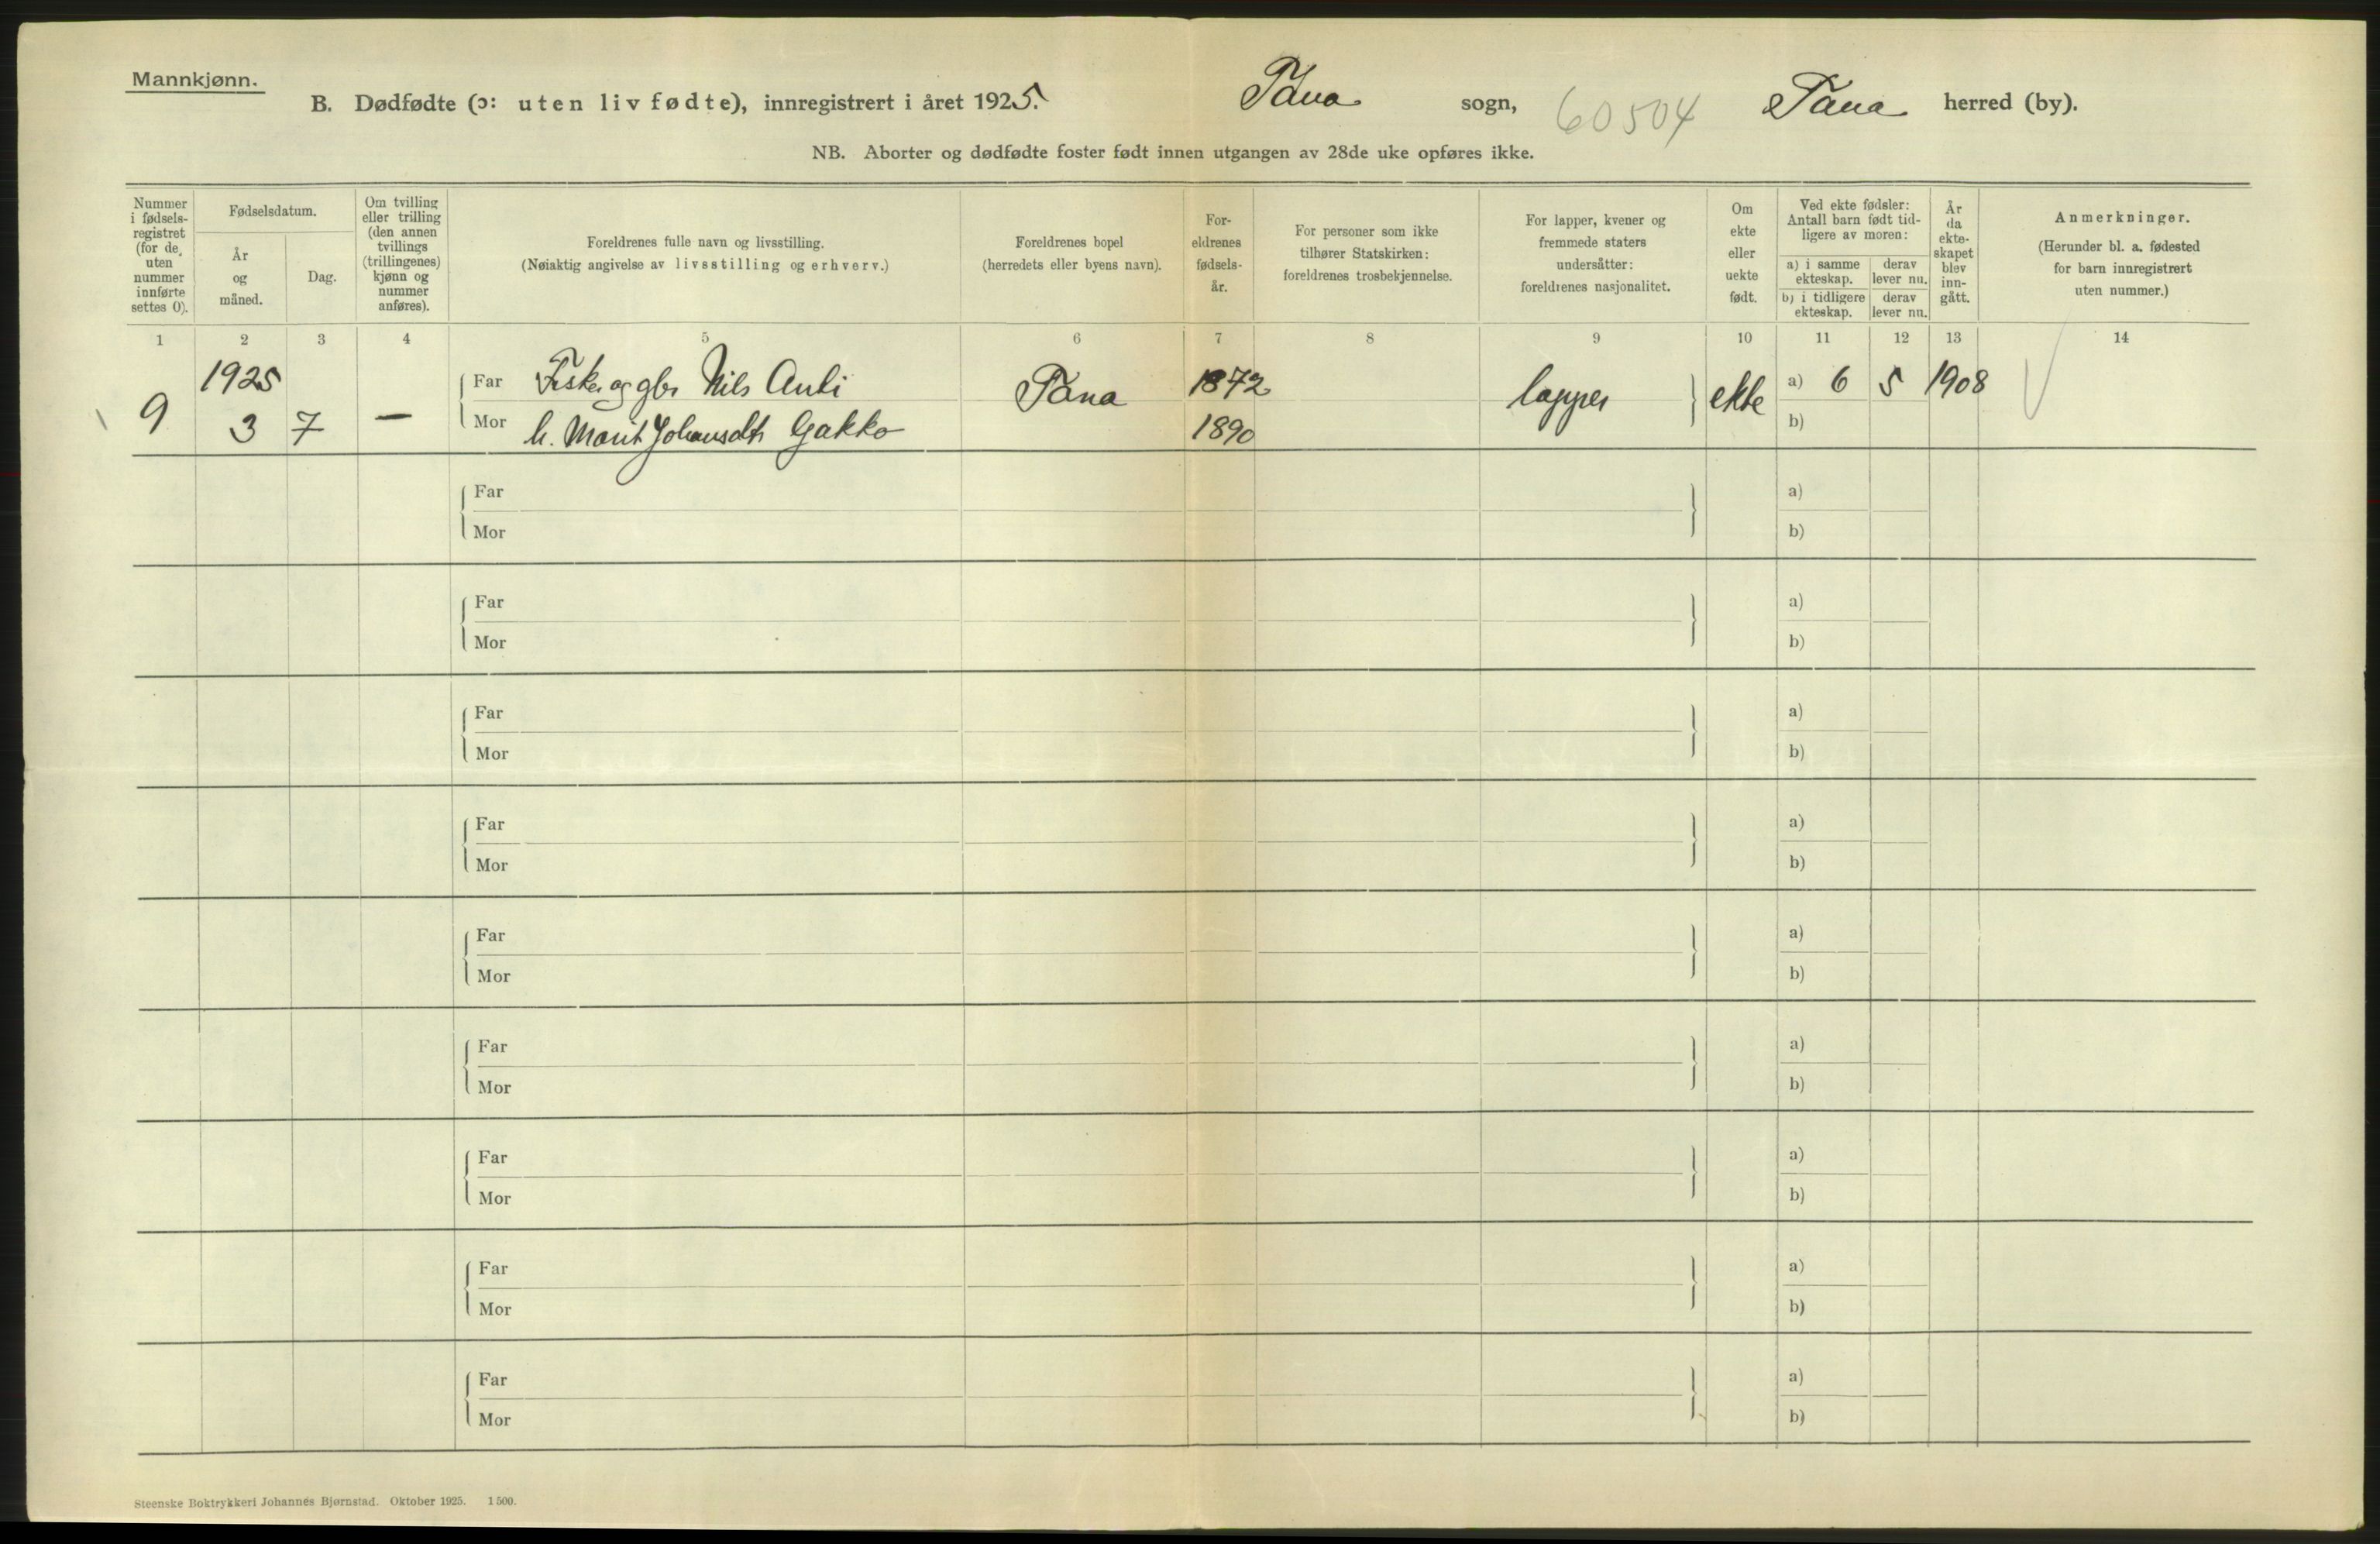 Mannkjønn.
B. Dødfødte (ɔ: uten liv fødte), innregistrert i året 1925. Tana sogn, 60504 Tana herred (by).
NB. Aborter og dødfødte foster født innen utgangen av 28de uke opføres ikke.
Nummer i fødsels-registret (for de uten nummer innførte settes 0).
Fødselsdatum.
År og måned.
Dag.
Om tvilling eller trilling (den annen tvillings (trillingenes) kjønn og nummer anføres).
Foreldrenes fulle navn og livsstilling.
(Nøiaktig angivelse av livsstilling og erhverv.)
Foreldrenes bopel
(herredets eller byens navn).
For-eldrenes fødsels-år.
For personer som ikke tilhører Statskirken: foreldrenes trosbekjennelse.
For lapper, kvener og fremmede staters undersåtter: foreldrenes nasjonalitet.
Om ekte eller uekte født.
Ved ekte fødsler: Antall barn født tid-ligere av moren:
a) i samme ekteskap.
derav lever nu.
b) i tidligere ekteskap.
derav lever nu.
År da ekte-skapet blev inn-gått.
Anmerkninger.
(Herunder bl. a. fødested for barn innregistrert uten nummer.)
1 2 3 4 5 6 7 8 9 10 11 12 13 14
1925 Far Fisker og gbr Nils Anti Tana 1872 lapper ekte a) 6 5 1908
9 3 7 — Mor h. Marit Johansdtr Gakko 1890 b)
Far a)
Mor b)
Far a)
Mor b)
Far a)
Mor b)
Far a)
Mor b)
Far a)
Mor b)
Far a)
Mor b)
Far a)
Mor b)
Far a)
Mor b)
Far a)
Mor b)
Steenske Boktrykkeri Johannes Bjørnstad. Oktober 1925. 1500.